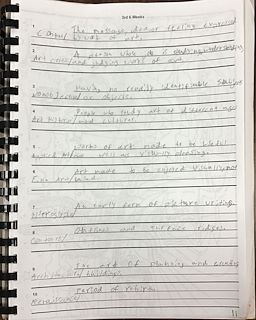 3rd 6 Weeks
1 The message, idea or feeling expressed
Content/ by work of art.
2 A person who is studying, understanding
Art critic/ and judging works of art.
3 Having no readily identifiable subjects
Nonobjective/ or objects.
4 People who study art of different ages
Art historian/ and cultures.
5 Works of art made to be useful
Applied Art/ as well as visually pleasing.
6 Art made to be enjoyed visually, not
Fine Art/
7 An early form of picture writing.
Hieroglyphic/
8 Outlines and surface ridges.
Contours/
9 The art of planning and creating
Architecture/ buildings.
10 Period of rebirth.
Renaissance/